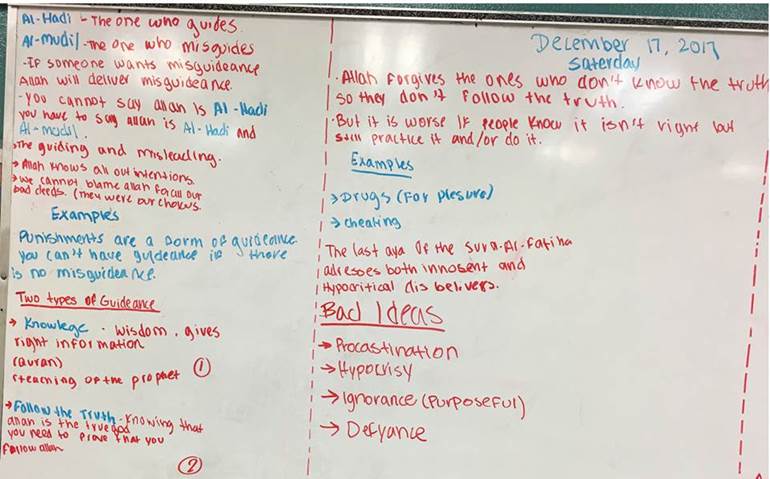 Al-Hadi - The one who guides.
Al-mudil - the one who misguides
-If someone wants misguideance
Allah will deliver misguideance.
-You cannot say allah is Al-Hadi
you have to say allah is Al-Hadi and
Al-mudil.
The guiding and misleading.
→ Allah knows all our intentions.
→ we cannot blame allah for all our
bad deeds. (They were our choices
Examples
Punishments are a form of guideance
you can't have guideance if there
is no misguideance.
Two types of Guideance
→ Knowlege - wisdom, gives
right information
(Quran)
(teaching of the prophet ①
→ Follow the Truth - Knowing that
allah is the true god
you need to prove that you
follow allah
②
December 17, 2017
Saterday
· Allah forgives the ones who don't know the truth
so they don't follow the truth.
· But it is worse If people know it isn't right but
still practice it and/or do it.
Examples
→ Drugs (for plesure)
→ cheating
The last aya of the sura-Al-Fatiha
adresses both innosent and
Hypocritical dis belivers.
Bad Ideas
→ Procastination
→ Hypocrisy
→ Ignorance (Purposeful)
→ Defyance